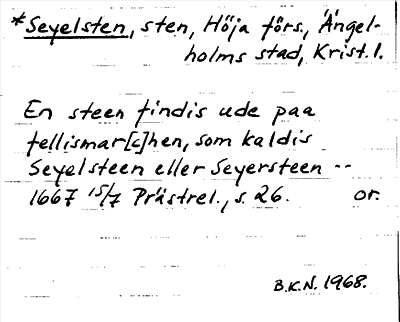 *Seyelsten, sten, Höja förs., Ängel-
holms stad, Krist. l.
En steen findis ude paa
fellismar[c]hen, som kaldis
Seyelsteen eller Seyersteen --
1667 15/7 Prästrel., s. 26. or.
B.K.N. 1968.